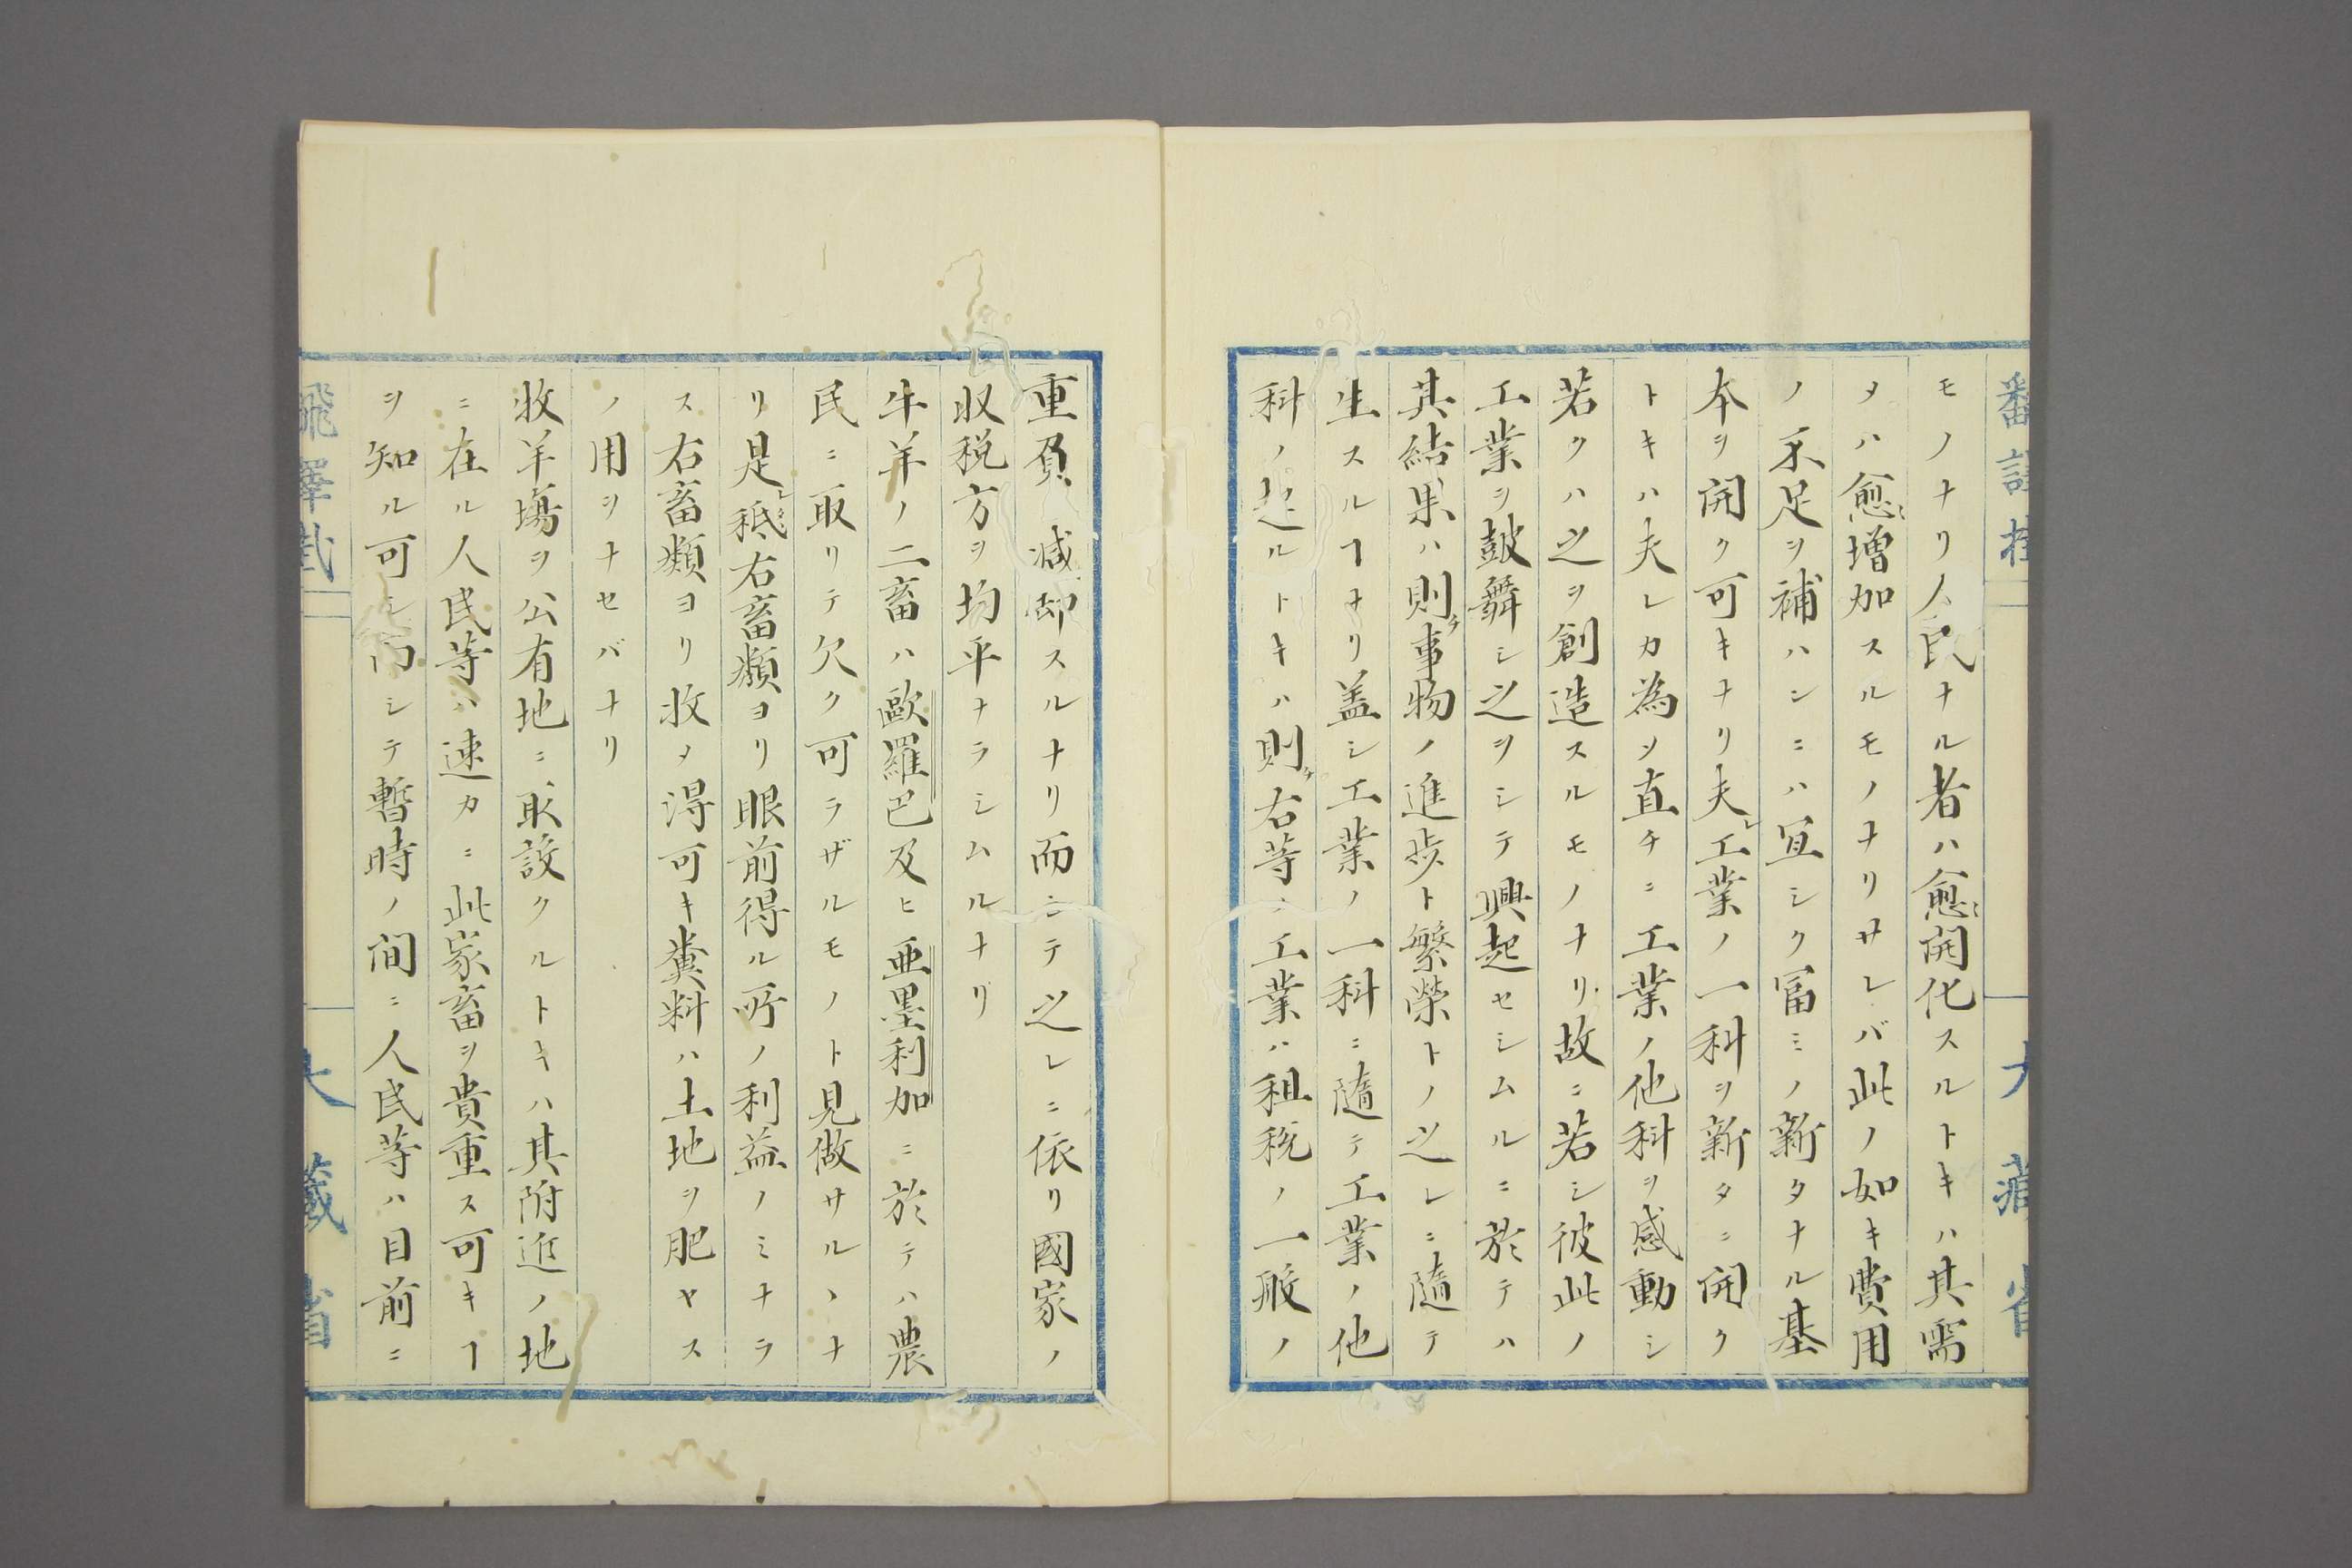 モノナリ人民ナル者ハ愈開化スルトキハ其需
メハ愈増加スルモノナリサレバ此ノ如キ費用
ノ不足ヲ補ハンニハ宜シク富ミノ新タナル基
本ヲ開ク可キナリ夫レ工業ノ一科ヲ新タニ開ク
トキハ夫レカ為メ直チニ工業ノ他科ヲ感動シ
若クハ之ヲ創造スルモノナリ故ニ若シ彼此ノ
工業ヲ鼓舞シ之ヲシテ興起セシムルニ於テハ
其結果ハ則チ事物ノ進歩ト繁榮トノ之レニ隨テ
生スルヿナリ盖シ工業ノ一科ニ隨テ工業ノ他
科ノ起ルトキハ則チ右等ノ工業ハ租税ノ一般ノ
重負ヲ減却スルナリ而シテ之レニ依リ國家ノ
収税方ヲ均平ナラシムルナリ
牛羊ノ二畜ハ歐羅巴及ヒ亜墨利加ニ於テハ農
民ニ取リテ欠ク可ラザルモノト見做サルヽナ
リ是レ秪右畜類ヨリ眼前得ル所ノ利益ノミナラ
ス右畜類ヨリ收メ得可キ糞料ハ土地ヲ肥ヤス
ノ用ヲナセバナリ
牧羊場ヲ公有地ニ取設クルトキハ其附近ノ地
ニ在ル人民等ハ速カニ此家畜ヲ貴重ス可キヿ
ヲ知ル可シ而シテ暫時ノ間ニ人民等ハ目前ニ
大藏省